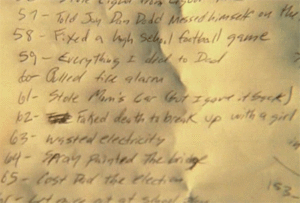 57- Told Jon Dan Dodd Messed himself on the
58- Fixed a high School football game
59- Everything I did to Dad
60- Pulled fire alarm
61- Stole Mom's Car (But I gave it back)
62- Faked death to break up with a girl
63- wasted electricity
64- Spray painted the bridge
65- Cost Dad the election
153-